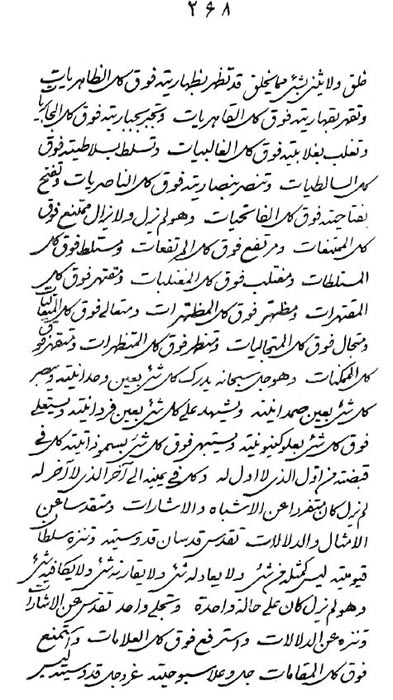 ۲۶۸
خلق ولا یثنی بشئ مما یخلق قد تظهر بظهاریته فوق کل الظاهریات
وتقهر بقهاریته فوق کل القاهریات وتجبر بجباریته فوق کل الجابریات
وتغلب بغلابیته فوق کل الغالبیات وتسلط بسلاطیته فوق
کل السالطیات وتنصر بنصاریته فوق کل الناصریات وتفتح
بفتاحیته فوق کل الفاتحیات وهو لم یزل ولا یزال ممتنع فوق
کل الممتنعات ومرتفع فوق کل المرتفعات ومتسلط فوق کل
المتسلطات ومغتلب فوق کل المغتلبات ومقتهر فوق کل
المقتهرات ومظتهر فوق کل المظتهرات ومتعالی فوق کل
ومتجال فوق کل المتجالیات ومنتظر فوق کل المنتظرات فوق
کل الممکنات وهو جل سبحانه یدرک کل شئ بعین وحدانیته ویبصر
کل شئ بعین صمدانیته ویشهد علی کل شئ بعین فردانیته ویستعلی
فوق کل شئ بعلو کینونیته ویستبهی فوق کل شئ ذاتیته کل فی
قبضته من اول الذی لا اول له وکل فی یمینه الی آخر الذی لا آخر له
لم یزل کان متفردا عن الاشباه والاشارات ومتقدسا عن
الامثال والدلالات تقدس قدسان قدوسیته وتنزه سلطان
قیومیته لیس کمثله من شئ ولا یعادله شئ ولا یقارنه شئ ولا یکافیه شئ
وهو لم یزل کان علی حالة واحدة وتجلی واحد تقدس عن الاشارات
وتنزه عن الدلالات واسترفع فوق کل العلامات واستمنع
فوق کل المقامات جل وعلا سبوحیته عز وجل قدوسیته لیس